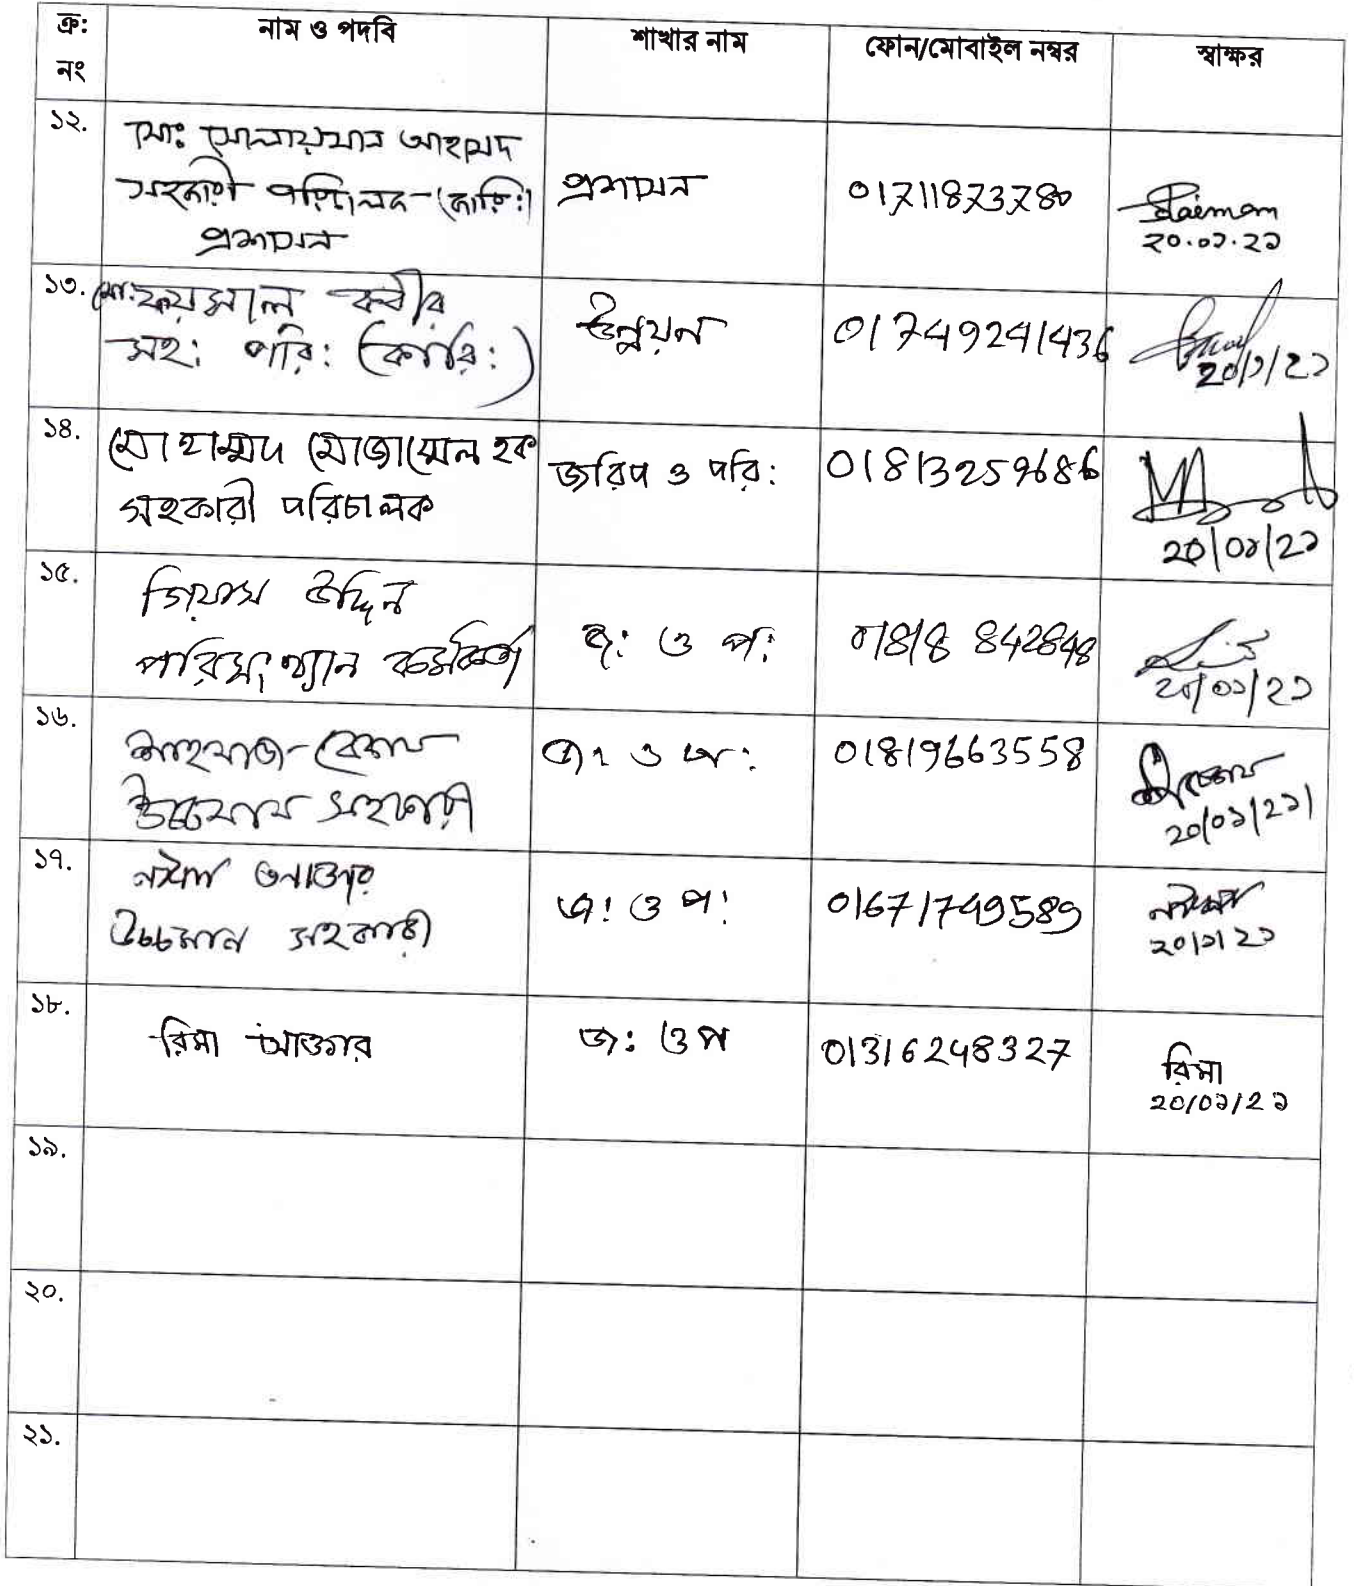 ক্র: নং	নাম ও পদবি	শাখার নাম	ফোন/মোবাইল নম্বর	স্বাক্ষর
১২.
মো: সোলায়মান আহমেদ
সহকারী পরিচালক-(কারি:)
প্রশাসন
প্রশাসন
01711873780
Solaiman
২০.০১.২১
১৩.
মো: ফয়সাল কবীর
সহ: পরি: (কারি:)
উন্নয়ন
01749241436
২০/১/২১
১৪.
মোহাম্মদ মোজাম্মেল হক
সহকারী পরিচালক
জরিপ ও পরি:
01813259686
২০/০১/২১
১৫.
গিয়াস উদ্দিন
পরিসংখ্যান কর্মকর্তা
জ: ও প:
01818 842848
২০/০১/২১
১৬.
শাহনাজ বেগম
উচ্চমান সহকারী
জ: ও প:
01819663558
২০/০১/২১
১৭.
আক্তার
উচ্চমান সহকারী
জ: ও প:
01671749589
২০/১/২১
১৮.
রিমা আক্তার
জ: ও প
01316248327
রিমা
২০/০১/২১
১৯.
২০.
২১.